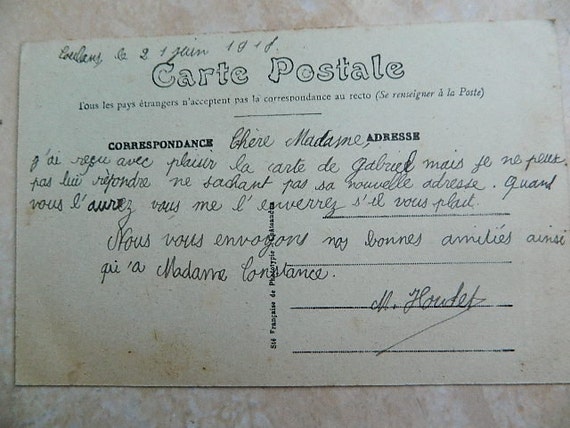 le 21 juin 1918
Carte Postale
Tous les pays étrangers n'acceptent pas la correspondance au recto (Se renseigner à la Poste)
CORRESPONDANCE
ADRESSE
Chère Madame,
J'ai reçu avec plaisir la carte de Gabriel mais je ne peux
pas lui répondre ne sachant pas sa nouvelle adresse. Quand
vous l'aurez vous me l'enverrez s'il vous plait.
Nous vous envoyons nos bonnes amitiés ainsi
qu'a Madame Constance.
M. Houdet
Sté Française de Phototypie